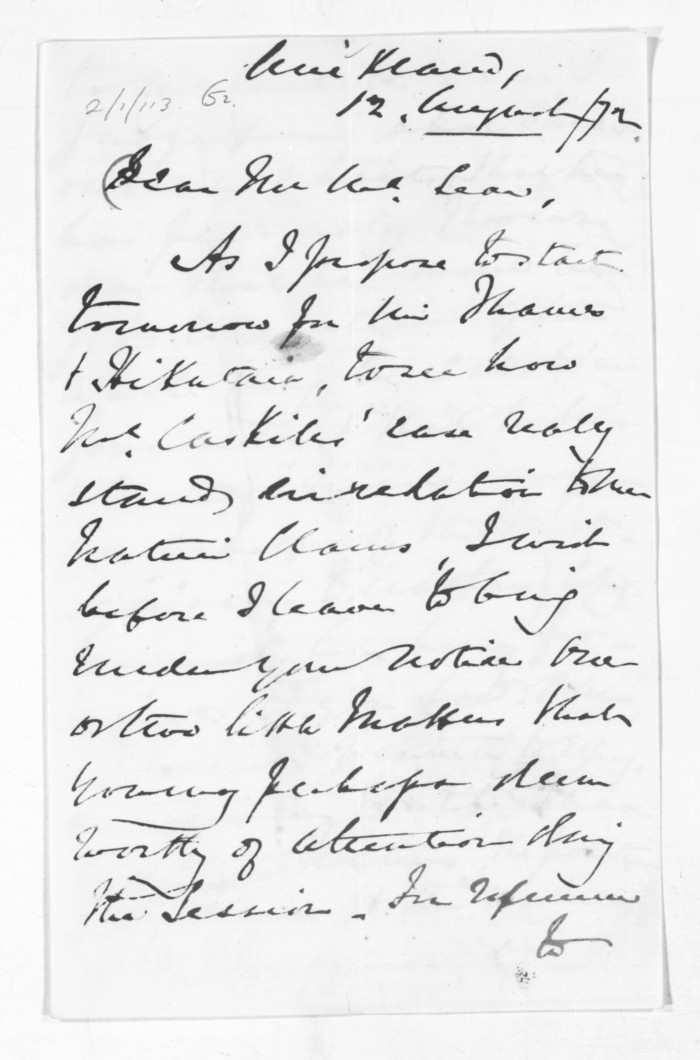 Auckland,
2/1/113.
12. August/72.
Dear Mr McLean,
As I propose to start
tomorrow for the Thames
& Hikutaia, to see how
Mc. Caskills' case realy
stands in relation to the
Native Claims, I wish
before I leave to bring
under your notice one
or two little matters that
you may perhaps deem
worthy of attention dring
the Session. In reference
to